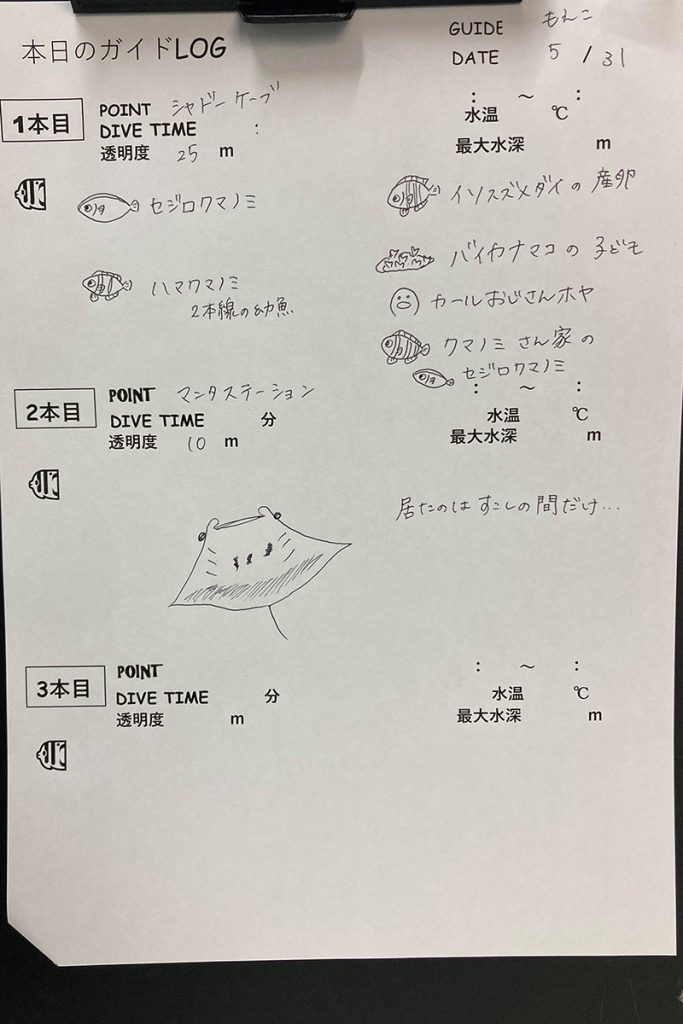 本日のガイドLOG
GUIDE もんこ
DATE 5 / 31
1本目
POINT シャドーケーブ
DIVE TIME :
透明度 25 m
: ～ :
水温 ℃
最大水深 m
セジロクマノミ
ハマクマノミ
2本線の幼魚
イソスズメダイの産卵
バイカナマコの子ども
カールおじさんホヤ
クマノミさん家の
セジロクマノミ
2本目
POINT マンタステーション
DIVE TIME 分
透明度 10 m
: ～ :
水温 ℃
最大水深 m
居たのはすこしの間だけ...
3本目
POINT
DIVE TIME 分
透明度 m
: ～ :
水温 ℃
最大水深 m